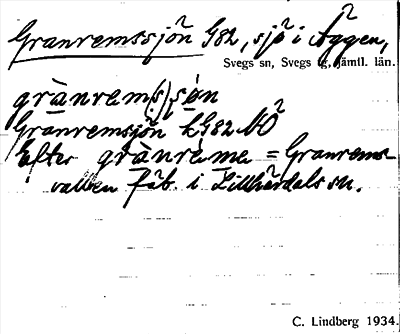 Granremssjön G82, sjö i Äggen,
Svegs sn, Svegs tg, Jämtl. län.
grànrem(s)søn
Granremsjön LG82 NÖ
Efter grànrème = Granrems-
vallen fäb. i Lillhärdals sn.
C. Lindberg 1934.